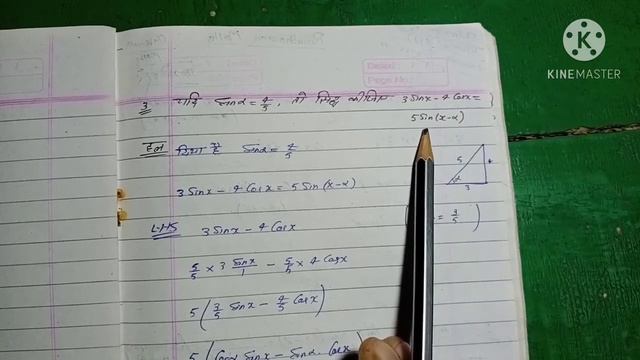 KINEMASTER
3 यदि Sinα = 4/5, तो सिद्ध कीजिए 3 Sinx - 4 Cosx =
5 Sin(x-α)
हल दिया है Sinα = 4/5
3 Sinx - 4 Cosx = 5 Sin(x-α)
5
4
α
3
LHS 3 Sinx - 4 Cosx
= 3/5)
5/5 × 3 Sinx/1 - 5/5 × 4 Cosx
5(3/5 Sinx - 4/5 Cosx)
5(Cosα Sinx - Sinα. Cosx)